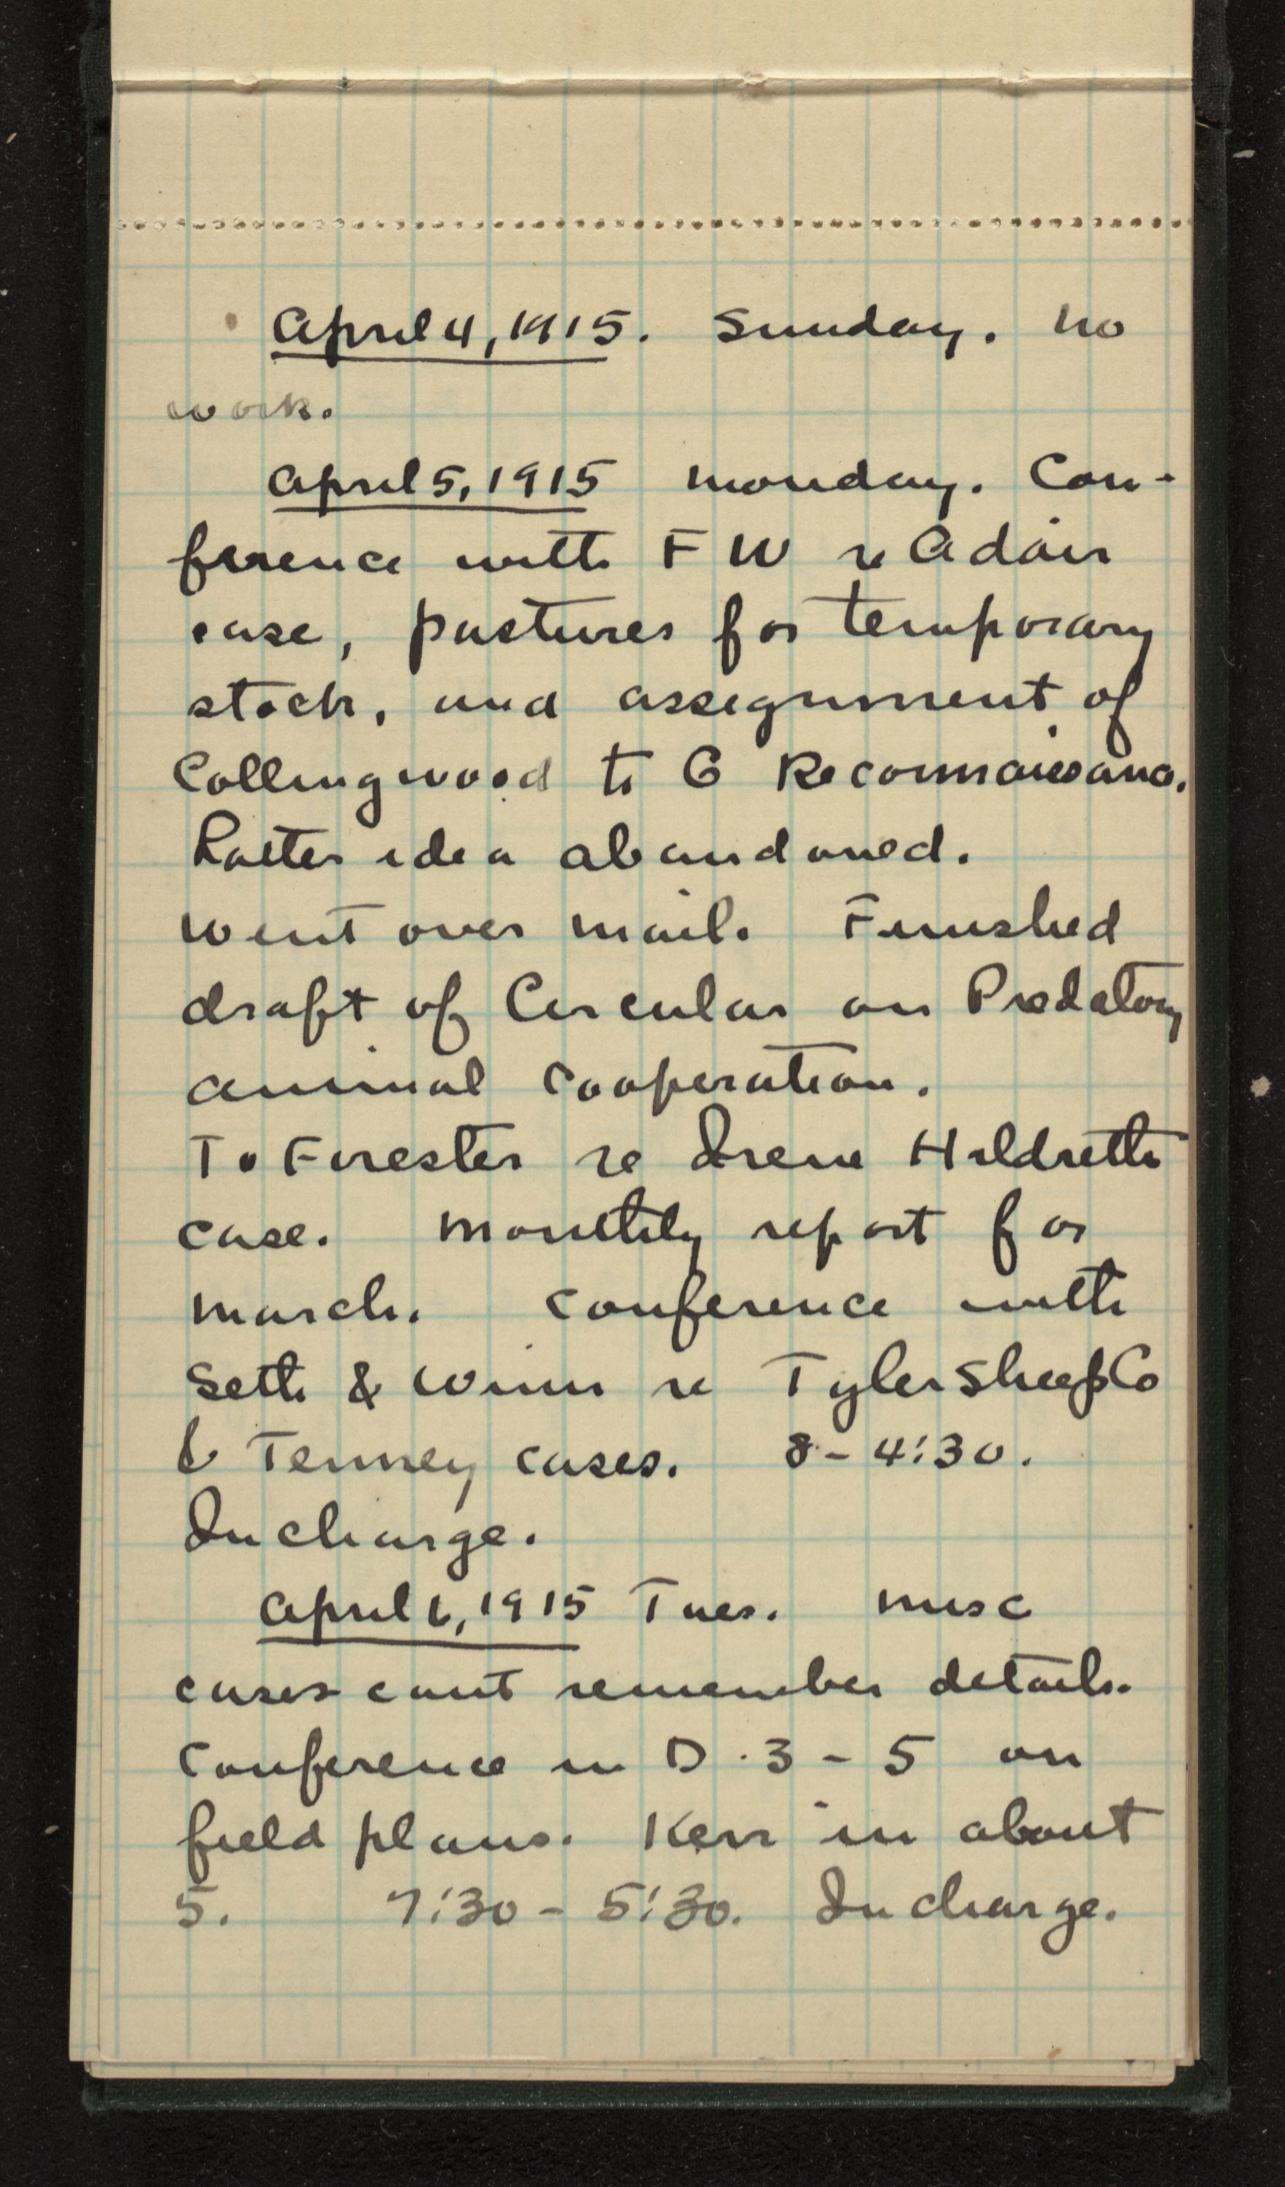 April 4, 1915. Sunday. No
work.
April 5, 1915 Monday. Con-
ference with F W re Adair
case, pastures for temporary
stock, and assignment of
Collingwood to G Reconnaissance.
Latter idea abandoned.
Went over mail. Finished
draft of Circular on Predatory
animal cooperation.
To Forester re Irene Hildreth
case. Monthly report for
March. Conference with
Seth & Winn re Tyler Sheep Co
& Tenney cases. 8 - 4:30.
In charge.
April 6, 1915 Tues. Misc
cases cant remember details.
Conference in D. 3 - 5 on
field plans. Kerr in about
5. 7:30 - 5:30. In charge.